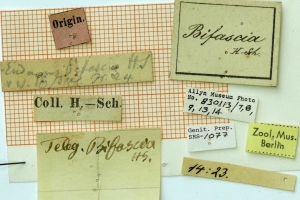 Origin.
Bifascia
H-Sch.
Coll. H,—Sch.
Allyn Museum Photo
No. 830113/7,8,
9, 13, 14
Genit. Prep.
SRS-1077
Zool. Mus.
Berlin
Teleg. Bifascia
HS.
14:23.